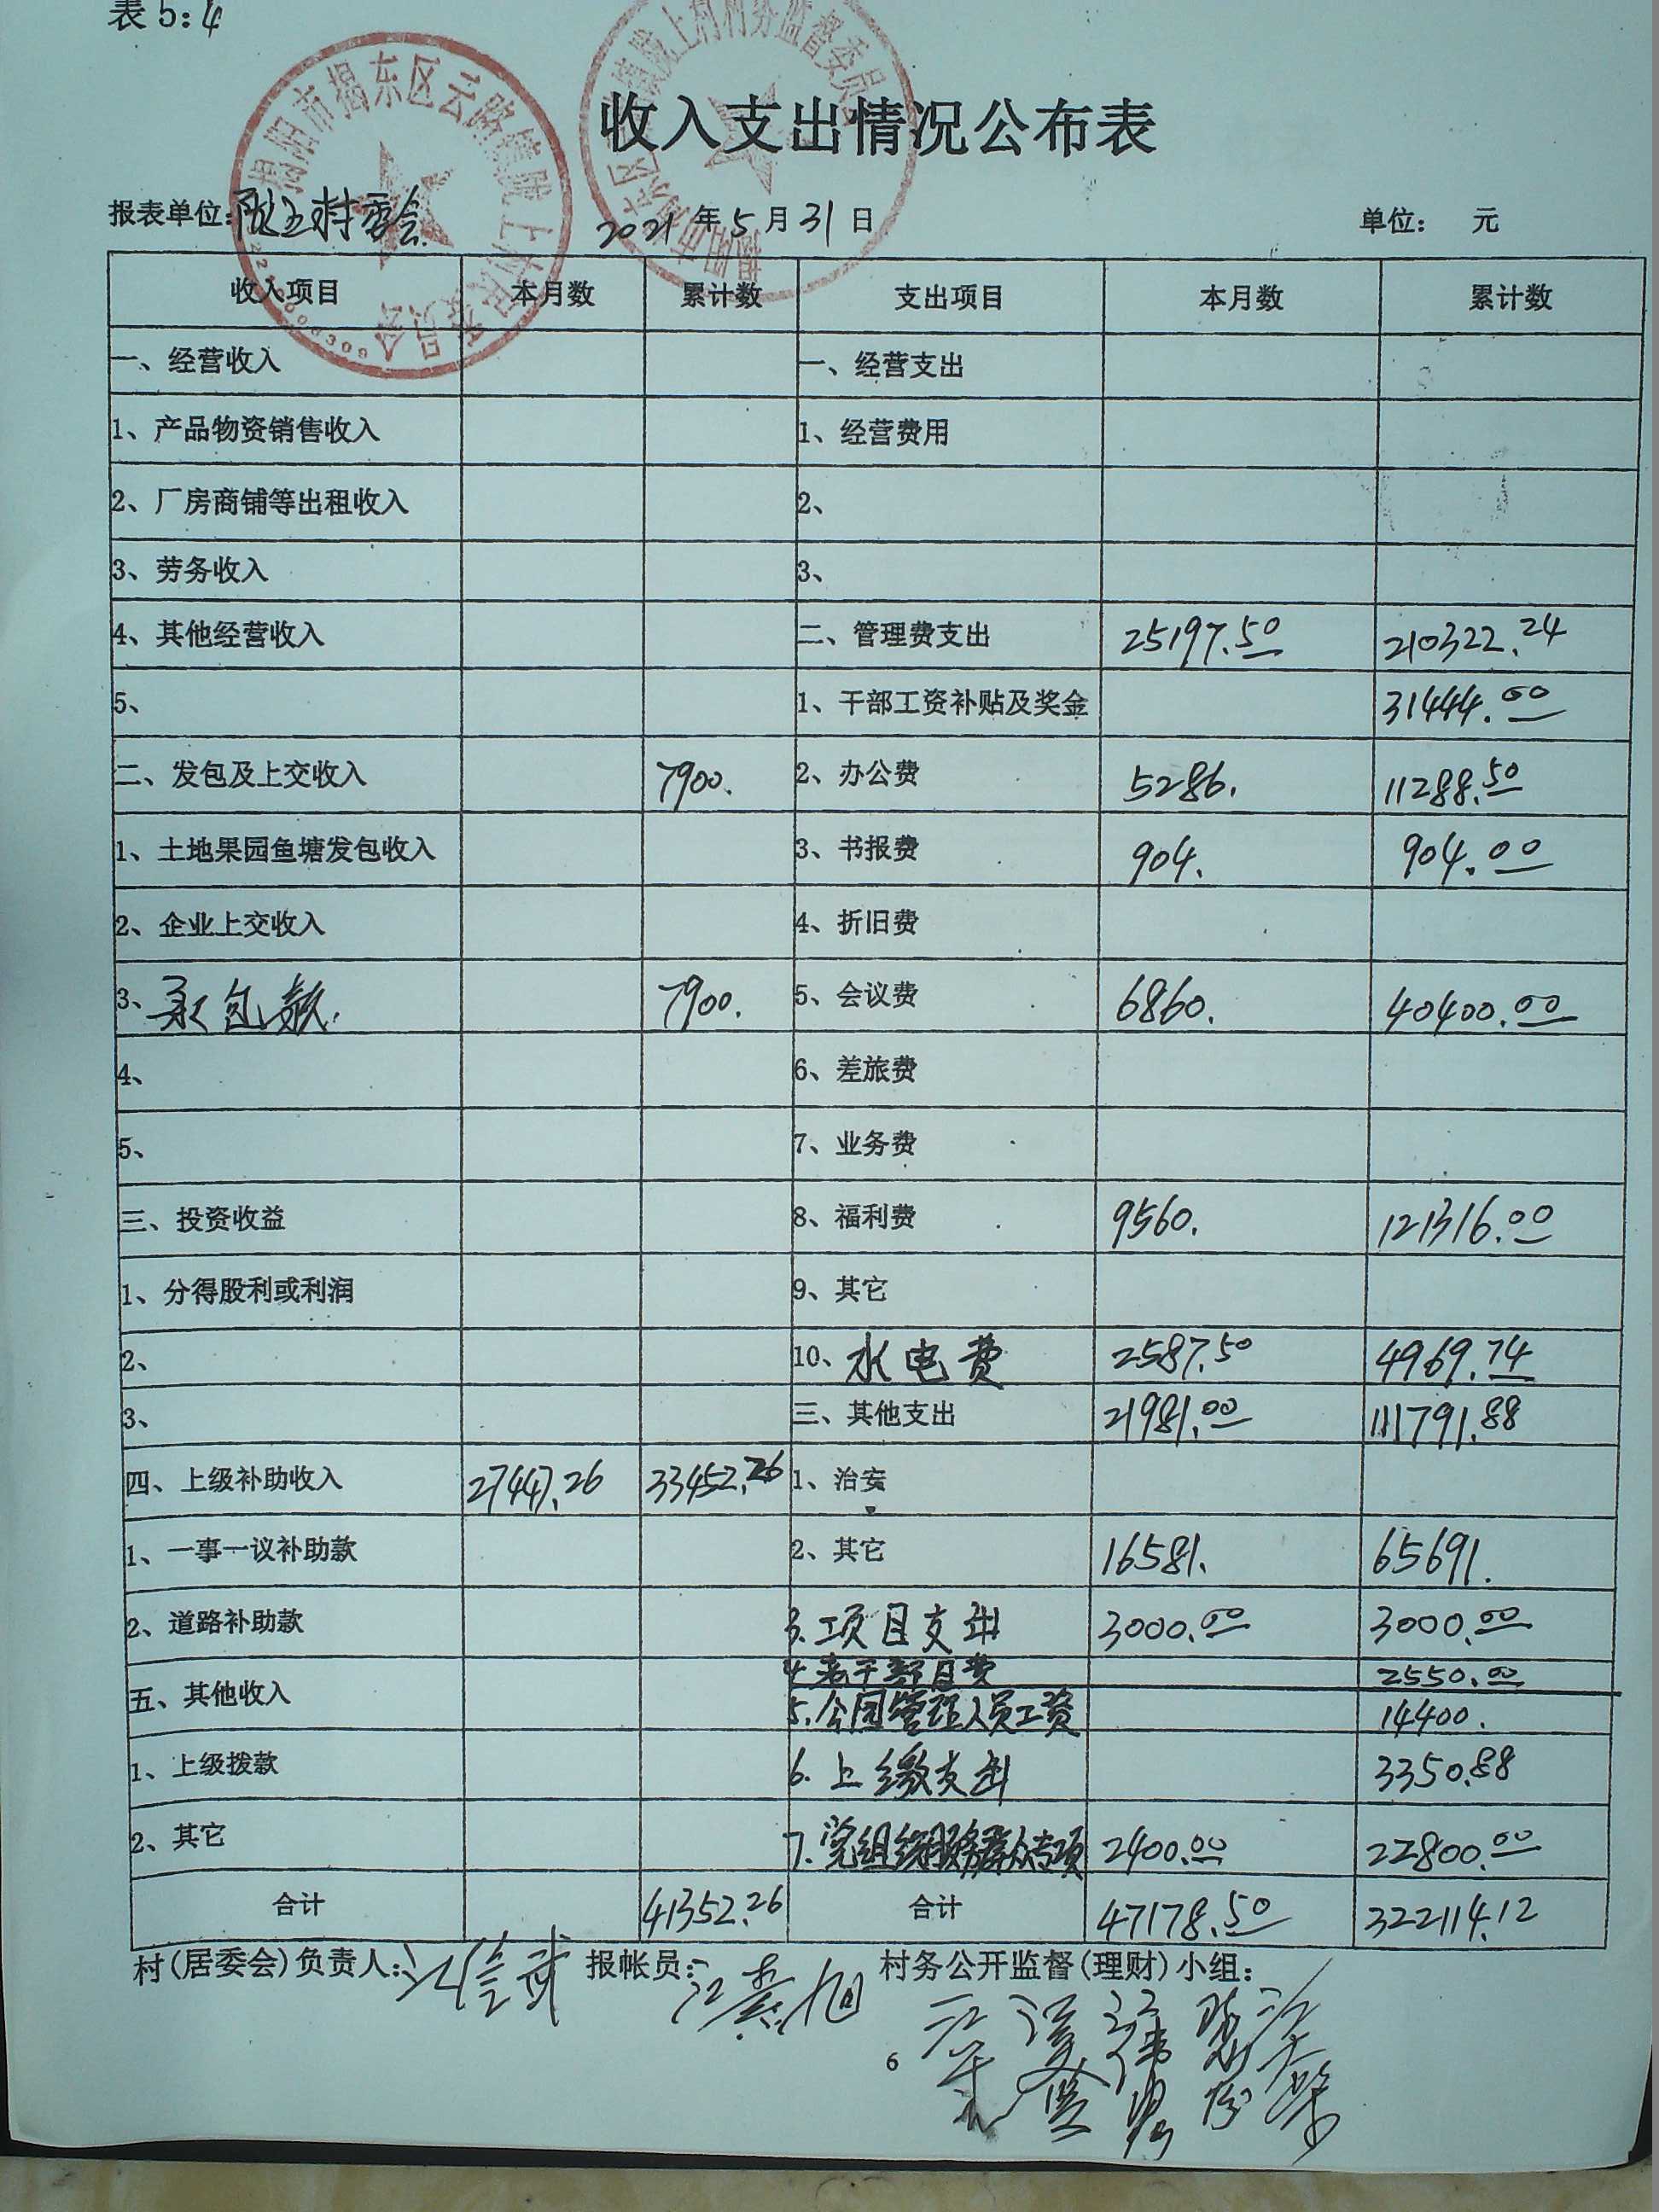 表5:4
揭阳市揭东区云路镇陇上村村民委员会
收入支出情况公布表
报表单位:陇上村委会 2021年5月31日 单位: 元
收入项目 本月数 累计数 支出项目 本月数 累计数
一、经营收入 一、经营支出
1、产品物资销售收入 1、经营费用
2、厂房商铺等出租收入 2、
3、劳务收入 3、
4、其他经营收入 二、管理费支出 25197.50 210322.24
5、 1、干部工资补贴及奖金 31444.00
二、发包及上交收入 7900. 2、办公费 5286. 11288.50
1、土地果园鱼塘发包收入 3、书报费 904. 904.00
2、企业上交收入 4、折旧费
3、承包款. 7900. 5、会议费 6860. 40400.00
4、 6、差旅费
5、 7、业务费
三、投资收益 8、福利费 9560. 121316.00
1、分得股利或利润 9、其它
2、 10、水电费 2587.50 4969.74
3、 三、其他支出 21981.00 111791.88
四、上级补助收入 27447.26 33452.26 1、治安
1、一事一议补助款 2、其它 16581. 65691.
2、道路补助款 3.项目支出 3000.00 3000.00
4.老干部日费 2550.00
五、其他收入 5.公园管理人员工资 14400.
1、上级拨款 6.上缴支出 3350.88
2、其它 7.党组织服务群众专项 2400.00 22800.00
合计 41352.26 合计 47178.50 322114.12
村(居委会)负责人: 报帐员: 村务公开监督(理财)小组:
6